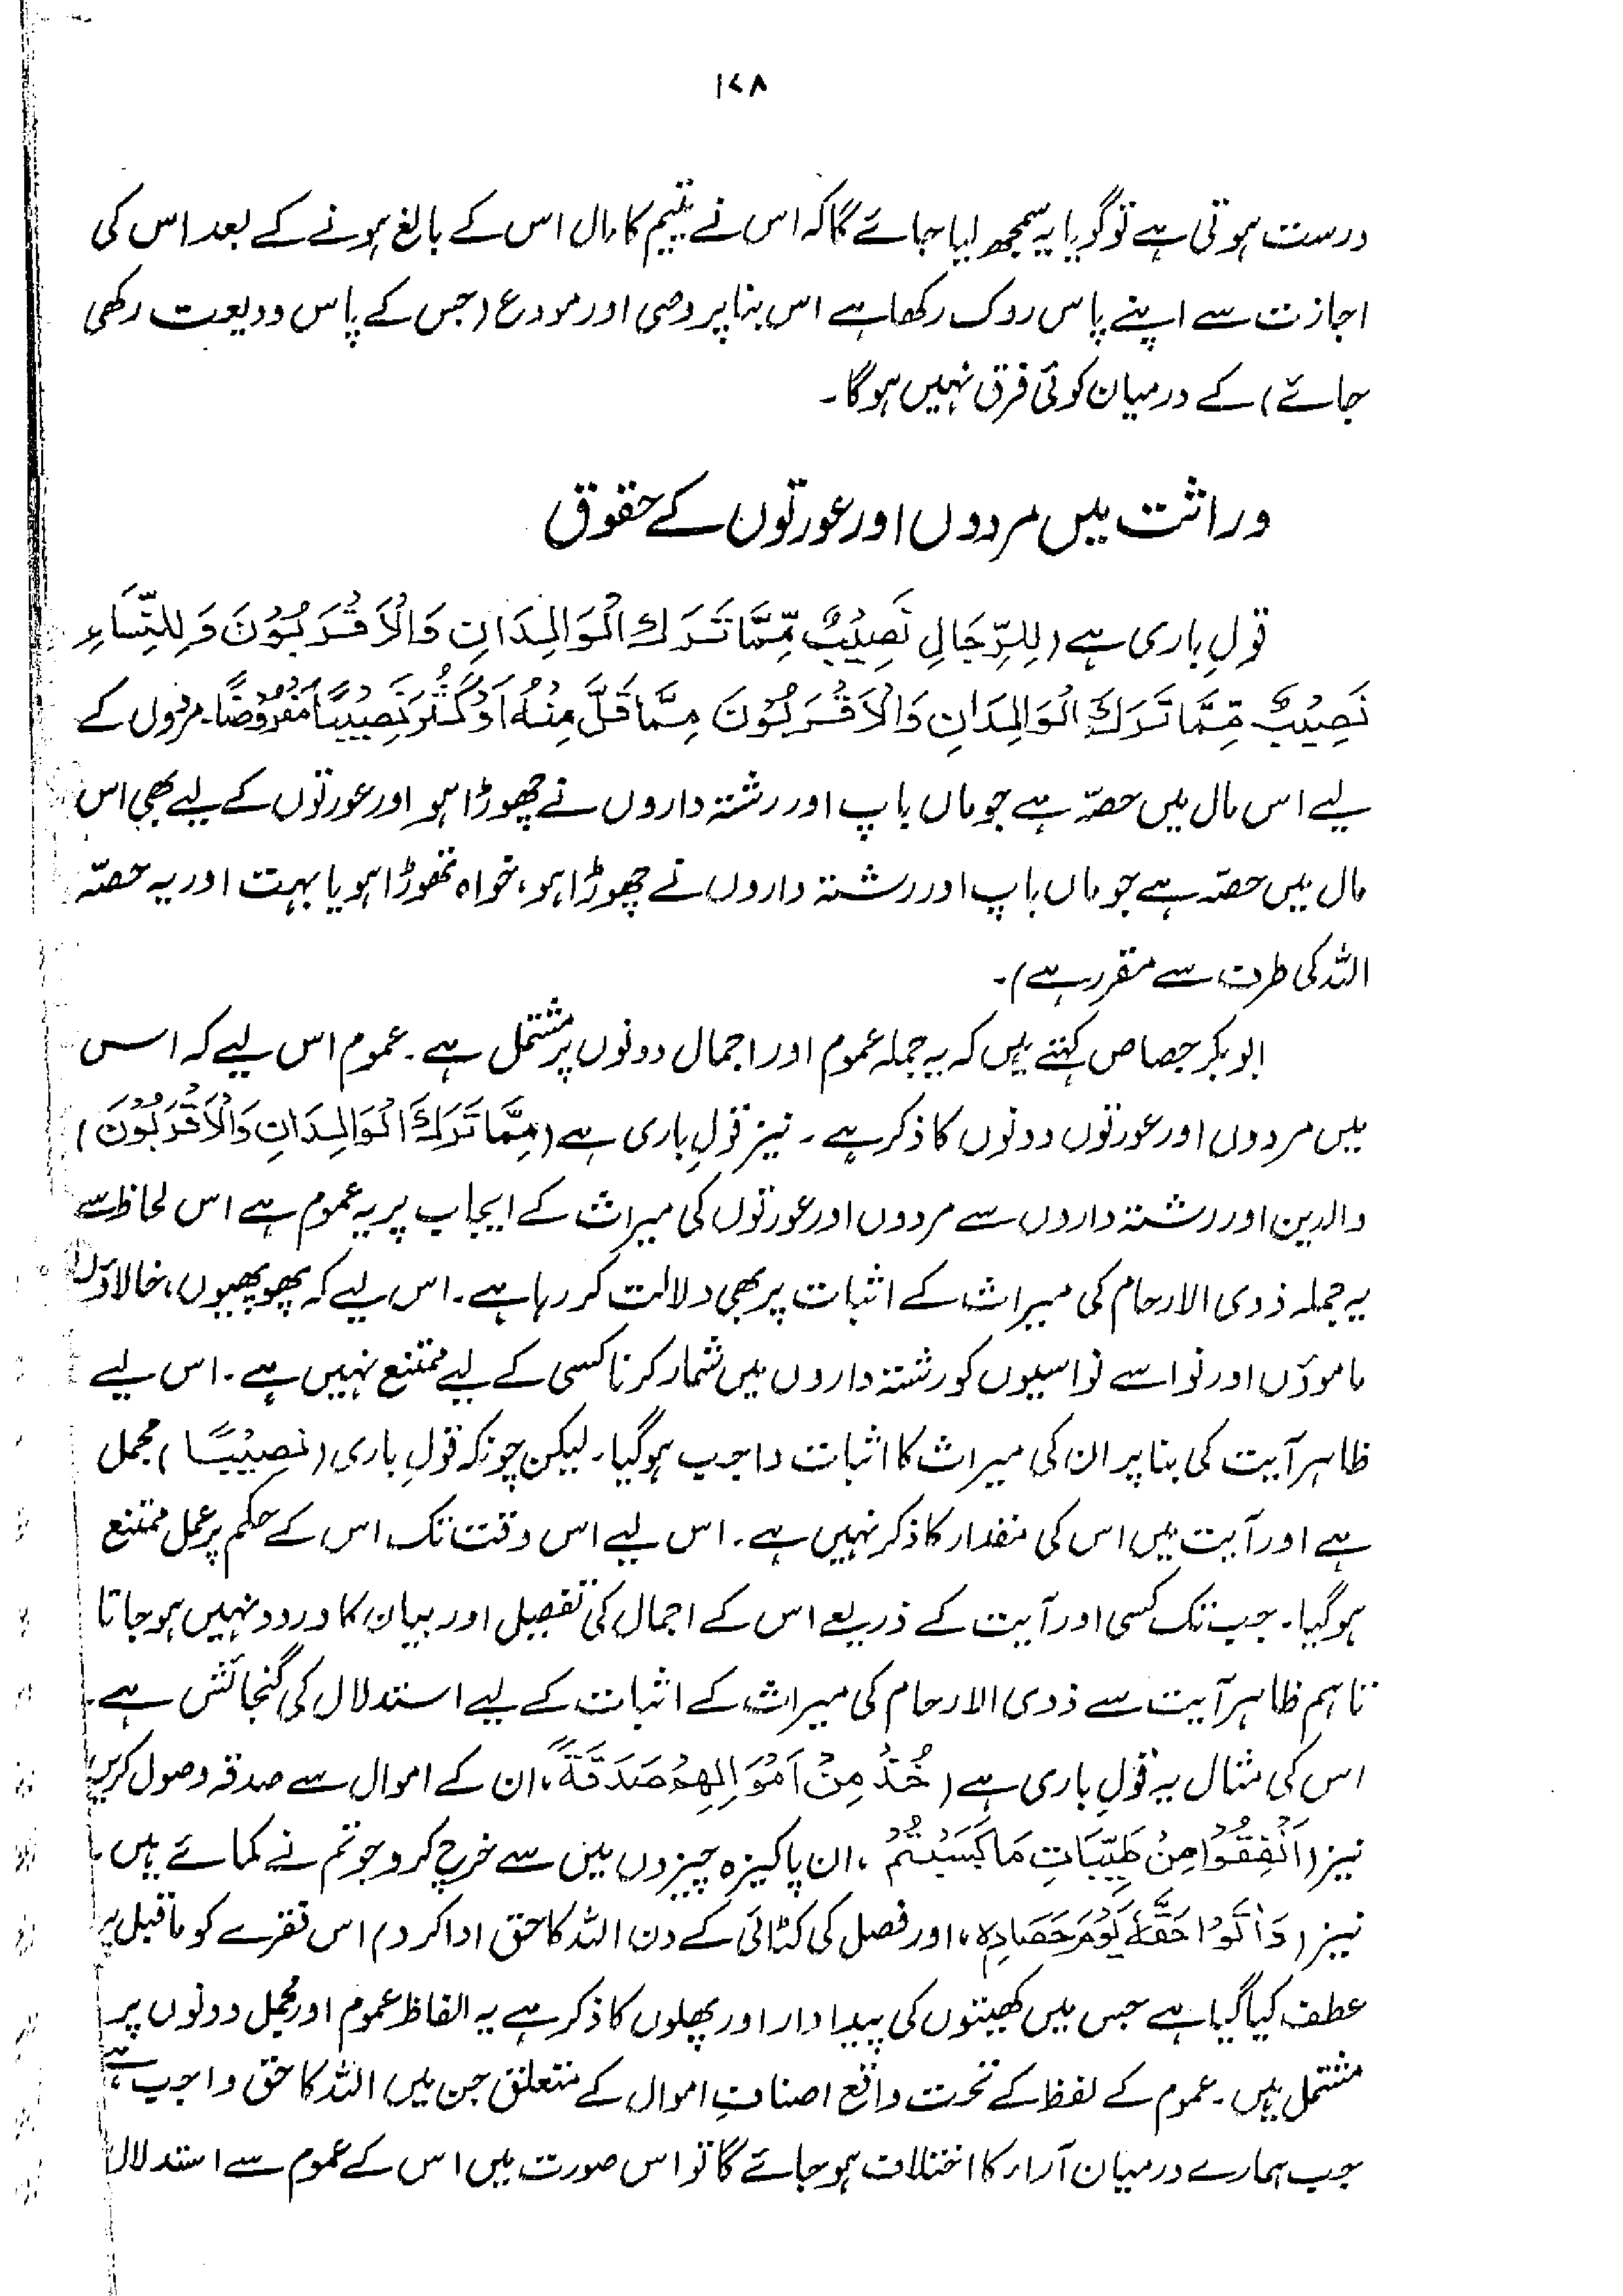 ۱۷۸
درست ہوتی ہے تو گویا یہ سمجھ لیا جائے گا کہ اس نے یتیم کا مال اس کے بالغ ہونے کے بعد اس کی
اجازت سے اپنے پاس روک رکھا ہے اس بنا پر وصی اور مودع (جس کے پاس ودیعت رکھی
جائے) کے درمیان کوئی فرق نہیں ہوگا۔
وراثت میں مردوں اور عورتوں کے حقوق
قولِ باری ہے (لِلرِّجَالِ نَصِیْبٌ مِّمَّا تَرَكَ الْوَالِدَانِ وَالْاَقْرَبُوْنَ وَلِلنِّسَاءِ
نَصِیْبٌ مِّمَّا تَرَكَ الْوَالِدَانِ وَالْاَقْرَبُوْنَ مِمَّا قَلَّ مِنْهُ اَوْ كَثُرَ نَصِیْبًا مَّفْرُوْضًا۔ مردوں کے
لیے اس مال میں حصّہ ہے جو ماں باپ اور رشتہ داروں نے چھوڑا ہو اور عورتوں کے لیے بھی اس
مال میں حصّہ ہے جو ماں باپ اور رشتہ داروں نے چھوڑا ہو، خواہ تھوڑا ہو یا بہت اور یہ حصّہ
اللہ کی طرف سے مقرر ہے)۔
ابو بکر جصاص کہتے ہیں کہ یہ جملہ عموم اور اجمال دونوں پر مشتمل ہے۔ عموم اس لیے کہ اس
میں مردوں اور عورتوں دونوں کا ذکر ہے۔ نیز قولِ باری ہے (مِمَّا تَرَكَ الْوَالِدَانِ وَالْاَقْرَبُوْنَ)
والدین اور رشتہ داروں سے مردوں اور عورتوں کی میراث کے ایجاب پر یہ عموم ہے اس لحاظ سے
یہ جملہ ذوی الارحام کی میراث کے اثبات پر بھی دلالت کر رہا ہے۔ اس لیے کہ پھوپھیوں، خالاؤں
ماموؤں اور نواسے نواسیوں کو رشتہ داروں میں شمار کرنا کسی کے لیے ممتنع نہیں ہے۔ اس لیے
ظاہر آیت کی بنا پر ان کی میراث کا اثبات واجب ہوگیا۔ لیکن چونکہ قولِ باری (نَصِیْبًا) مجمل
ہے اور آیت میں اس کی مقدار کا ذکر نہیں ہے۔ اس لیے اس وقت تک اس کے حکم پر عمل ممتنع
ہوگیا۔ جب تک کسی اور آیت کے ذریعے اس کے اجمال کی تفصیل اور بیان کا ورود نہیں ہو جاتا
تاہم ظاہر آیت سے ذوی الارحام کی میراث کے اثبات کے لیے استدلال کی گنجائش ہے۔
اس کی مثال یہ قولِ باری ہے (خُذْ مِنْ اَمْوَالِهِمْ صَدَقَةً، ان کے اموال سے صدقہ وصول کریں)
نیز (اَنْفِقُوْا مِنْ طَیِّبَاتِ مَا كَسَبْتُمْ، ان پاکیزہ چیزوں میں سے خرچ کرو جو تم نے کمائے ہیں)
نیز (وَاٰتُوْا حَقَّهٗ یَوْمَ حَصَادِهٖ، اور فصل کی کٹائی کے دن اللہ کا حق ادا کرو) اس فقرے کو ماقبل پر
عطف کیا گیا ہے جس میں کھیتوں کی پیداوار اور پھلوں کا ذکر ہے یہ الفاظ عموم اور مجمل دونوں پر
مشتمل ہیں۔ عموم کے لفظ کے تحت واقع اصنافِ اموال کے متعلق جن میں اللہ کا حق واجب ہے،
جب ہمارے درمیان آراء کا اختلاف ہو جائے گا تو اس صورت میں اس کے عموم سے استدلال